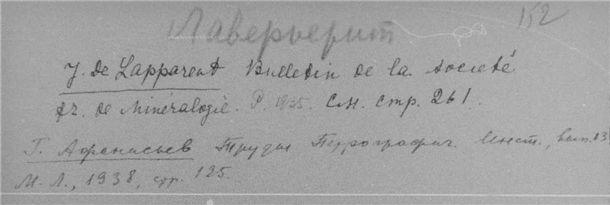 152
Лаверьерит
J. de Lapparent Bulletin de la société
fr. de Minéralogie. P. 1935. См. стр. 261.
Г. Афанасьев Труды Петрографич. Инст., вып. 13
М. Л., 1938, стр. 125.